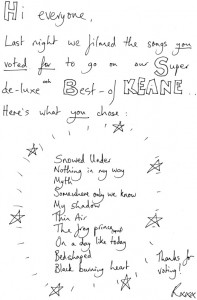 Hi everyone,
Last night we filmed the songs you
voted for to go on our Super
de-luxe ooh Best-of KEANE...
Here's what you chose:
Snowed Under
Nothing in my way
Myth
Somewhere only we know
My shadow
Thin Air
The frog prince
On a day like today
Bedshaped
Black burning heart
Thanks for
voting!
Rxxxx